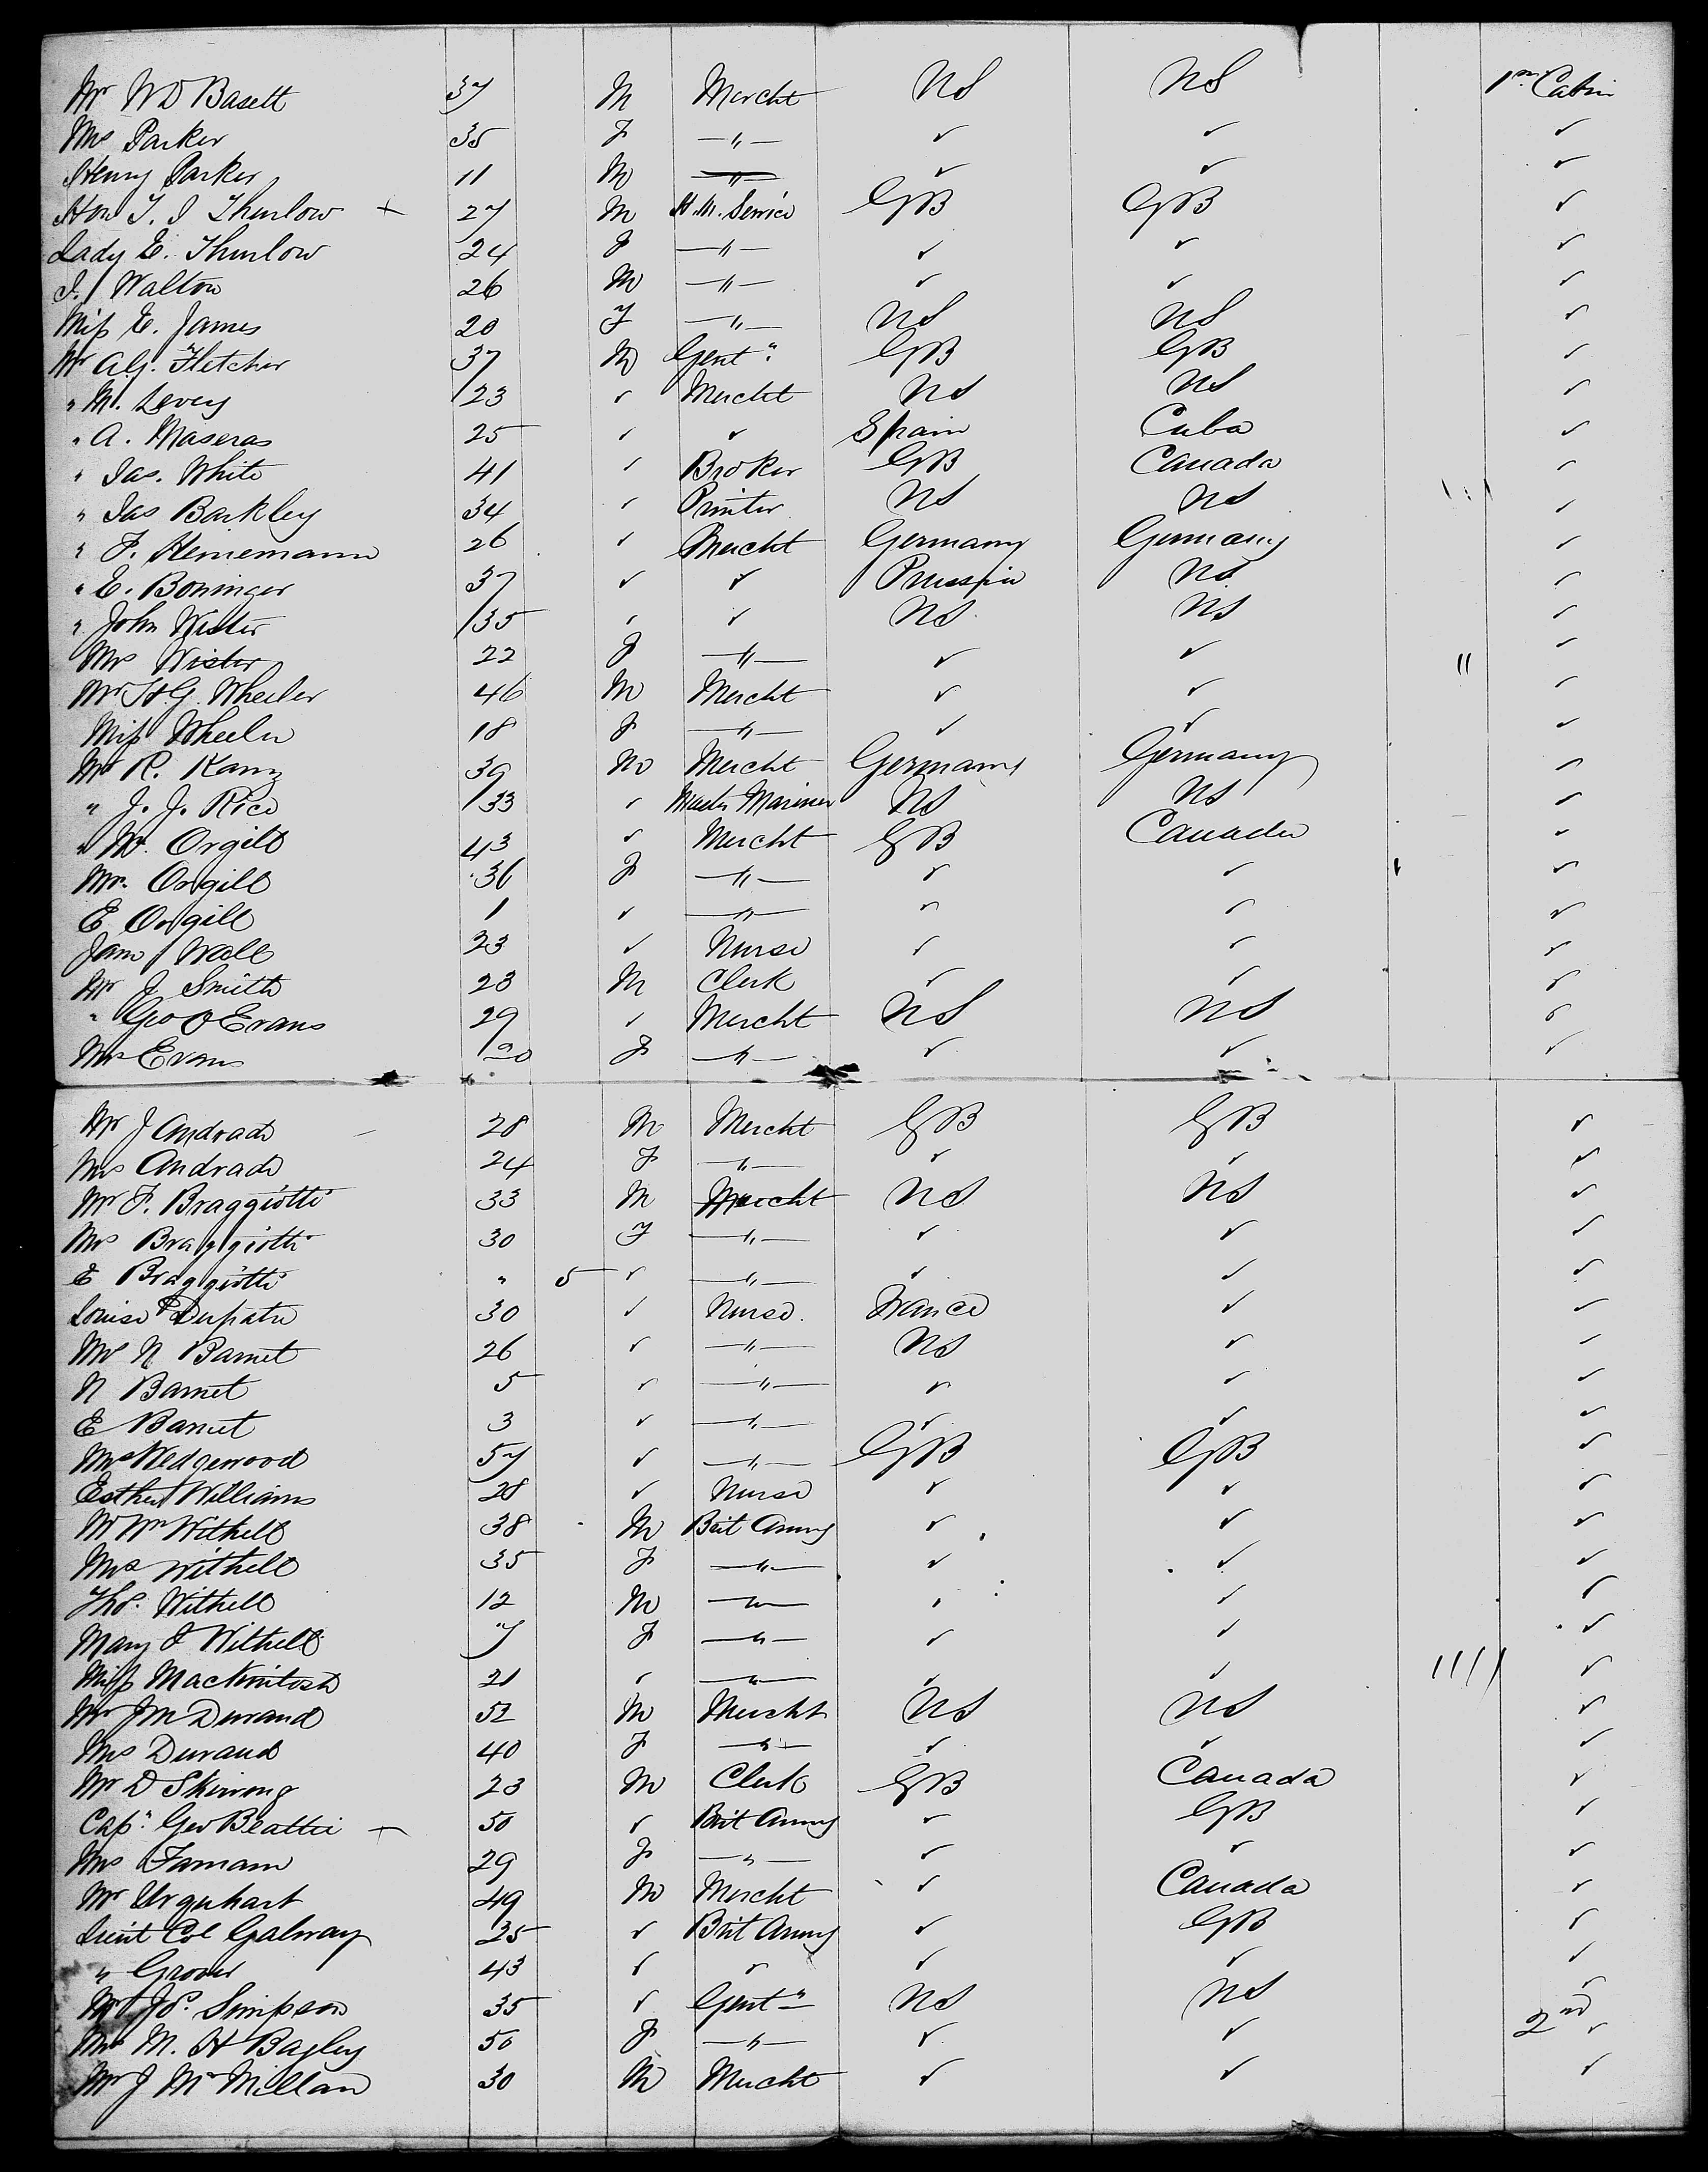 Mr W D Basett 37 M Mercht US US 1st Cabin
Mrs Parker 35 F —"— ✓ ✓ ✓
Henry Parker 11 M —"— ✓ ✓ ✓
Hon T. J Thurlow + 27 M H.M. Service GB GB ✓
Lady E. Thurlow 24 F —"— ✓ ✓ ✓
J. Walton 26 M —"— ✓ ✓ ✓
Miss E. James 20 F —"— US US ✓
Mr Alf. Fletcher 37 M Gentn GB GB ✓
" M. Levey 23 ✓ Mercht US US ✓
" A. Maseras 25 ✓ ✓ Spain Cuba ✓
" Jas. White 41 ✓ Broker GB Canada ✓
" Jas Barkley 34 ✓ Printer US US ✓
" F. Heinemann 26 ✓ Mercht Germany Germany ✓
" E. Boninger 37 ✓ ✓ Prussia US ✓
" John Wister 35 ✓ ✓ US US ✓
Mrs Wister 22 F —"— ✓ ✓ " ✓
Mr H.G. Wheeler 46 M Mercht ✓ ✓ ✓
Miss Wheeler 18 F —"— ✓ ✓ ✓
Mr R. Kanz 39 M Mercht Germany Germany ✓
" J. J. Rice 33 ✓ Master Mariner US US ✓
" M. Orgill 43 ✓ Mercht GB Canada ✓
Mrs. Orgill 36 F —"— ✓ ✓ ✓
E Orgill 1 ✓ —"— ✓ ✓ ✓
Jane Wall 23 ✓ Nurse ✓ ✓ ✓
Mr J Smith 23 M Clerk ✓ ✓ ✓
" Geo O Evans 29 ✓ Mercht US US ✓
Mrs Evans 20 F —"— ✓ ✓ ✓
Mr J Andrade 28 M Mercht GB GB ✓
Mrs Andrade 24 F —"— ✓ ✓ ✓
Mr F. Braggiotti 33 M Mercht US US ✓
Mrs Braggiotti 30 F —"— ✓ ✓ ✓
E Braggiotti " 5 ✓ —"— ✓ ✓ ✓
Louise 30 ✓ Nurse. France ✓ ✓
Mrs N Barnet 26 ✓ —"— US ✓ ✓
N Barnet 5 ✓ —"— ✓ ✓ ✓
E Barnet 3 ✓ —"— ✓ ✓ ✓
Mrs Wedgewood 57 ✓ —"— GB GB ✓
Esther Williams 28 ✓ Nurse ✓ ✓ ✓
Mr Wm Withell 38 M Brit Army ✓ ✓ ✓
Mrs Withell 35 F —"— ✓ ✓ ✓
Thos. Withell 12 M —"— ✓ ✓ ✓
Mary J Withell 7 F —"— ✓ ✓ ✓
Miss Mackintosh 21 ✓ —"— ✓ ✓ //// ✓
Mr J M Durand 52 M Mercht US US ✓
Mrs Durand 40 F —"— ✓ ✓ ✓
Mr D Skirving 23 M Clerk GB Canada ✓
Capn. Geo Beattie + 50 ✓ Brit Army ✓ GB ✓
Mrs Farnam 29 F —"— ✓ ✓ ✓
Mr Urquhart 49 M Mercht ✓ Canada ✓
Lieut Col Galway 35 ✓ Brit Army ✓ GB ✓
" Grover 43 ✓ ✓ ✓ ✓ ✓
Mr Js. Simpson 35 ✓ Gentn US US ✓
Mrs M. H Bagley 50 F —"— ✓ ✓ 2nd ✓
Mr J McMillan 30 M Mercht ✓ ✓ ✓